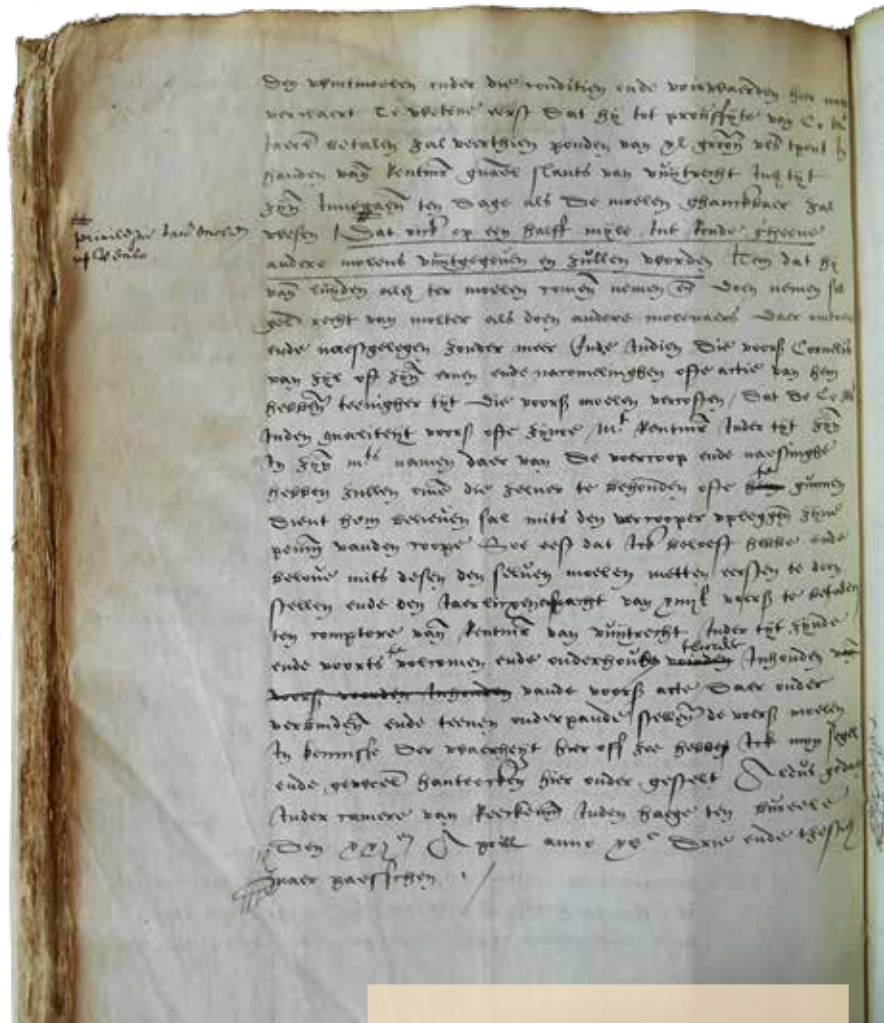 den wintmoelen onder die conditien ende voirwaerden hier nae
verclaert Te wetene eerst dat hij tot prouffijte van
betalen zal veerthien ponden van xl groon vls tpont In
handen vand Rentmr gnael slants van vuijtrecht Inder tijt
zijn Innegaen ten dage als de moelen ganckbaer zal
privilegie
wesen / Dat men op een halff mijle Int Ronde gheene
andere molens vuijtgegeven en zullen worden Item dat hij
van luijden aldaer ter moelen comen nemen en doen nemen sal
recht van molter als doen andere molenaers daer
ende naestgelegen zonder meer Ende Indien die voors Cornelis
van zijl oft zijn erven ende nacomelinghen ofte actie van hem
hebben teenigher tijt die voors moelen vercoften / Dat de Co Mt
Inden qualiteyt voors ofte zijne Mts Rentmr Inder tijt zijn
In zijn mts namen daer van de voercoop ende naestinghe
hebben zullen omme die zelve te behouden ofte te gunnen
dient hem believen sal mits den vercooper opleggen zijne
penn vanden coope Soe eest dat Ick beloeft hebbe ende
belove mits desen den selven moelen metten eersten te doen
stellen ende den Jaerlicxen pacht van xiiij £ voers te betalen
ten comptore vand Rentmr van vuijtrecht Inder tijt zijnde
ende voorts te volcomen ende onderhouden tvoirder Inhouden
voers Inhouden vande voors acte daer onder
verbinden ende teenen onderpande stellen de voers moelen
In kennisse der waerheyt hier off zoe hebbe Ick mijn segel
ende hanteecken hier onder gestelt Aldus gedaen
Inder camere van Reeckenn Inden haege ten bureele
Den xxien Aprill anno xvc drie ende tsestich
naer paesschen